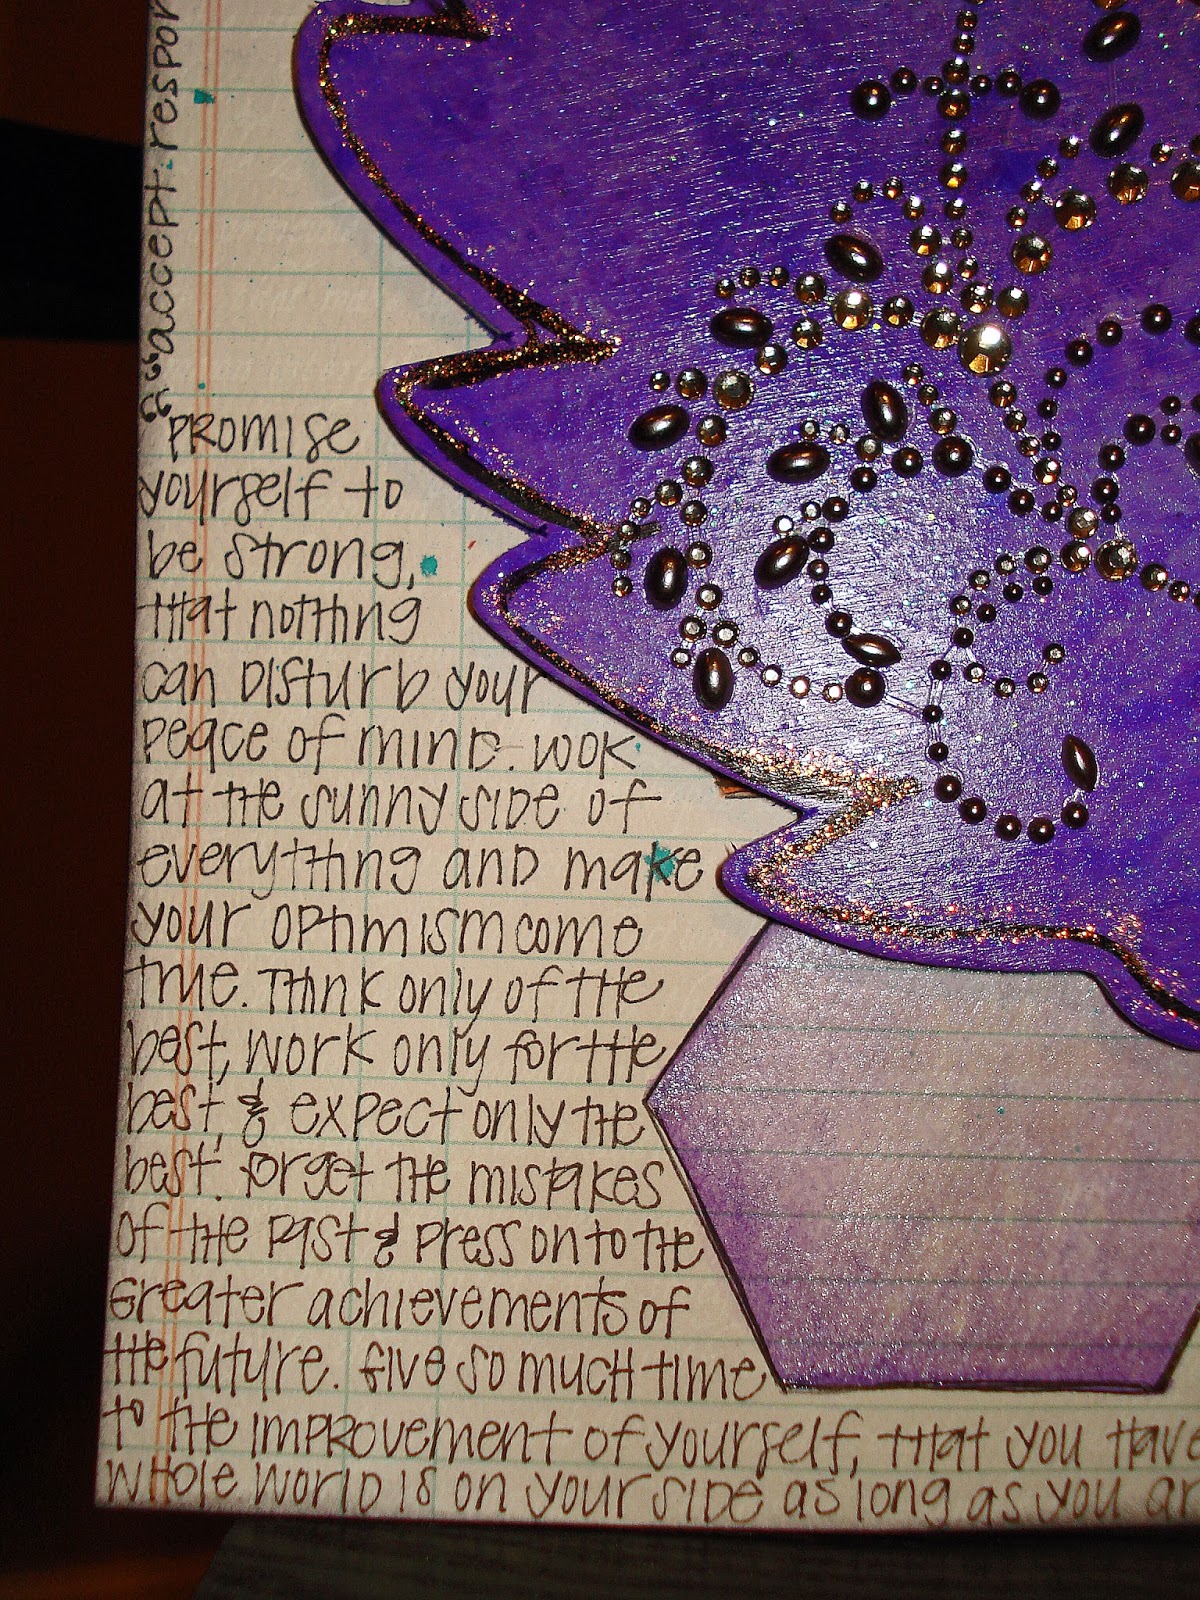 "accept respon
"Promise
yourself to
be strong,
that nothing
can disturb your
peace of mind. Look
at the sunny side of
everything and make
your optimism come
true. Think only of the
best, work only for the
best, & expect only the
best. Forget the mistakes
of the past & press on to the
Greater achievements of
the future. Give so much time
to the improvement of yourself, that you have
whole world is on your side as long as you ar